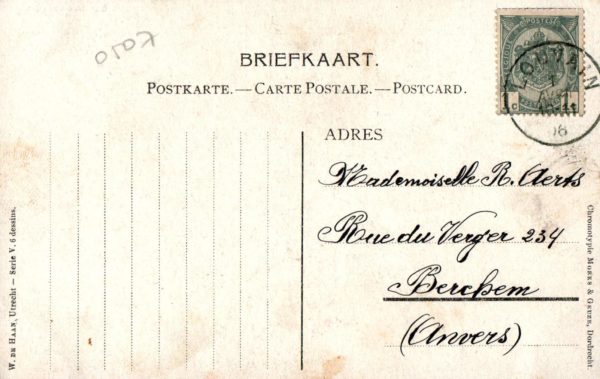 BRIEFKAART.
POSTKARTE.—CARTE POSTALE.—POSTCARD.
ADRES
Mademoiselle R. Aerts
Rue du Verger 234
Berchem
(Anvers)
W. DE HAAN, Utrecht — Serie V, 6 dessins.
Chromotypie MORKS & GEUZE, Dordrecht.
LOUVAIN
POSTES